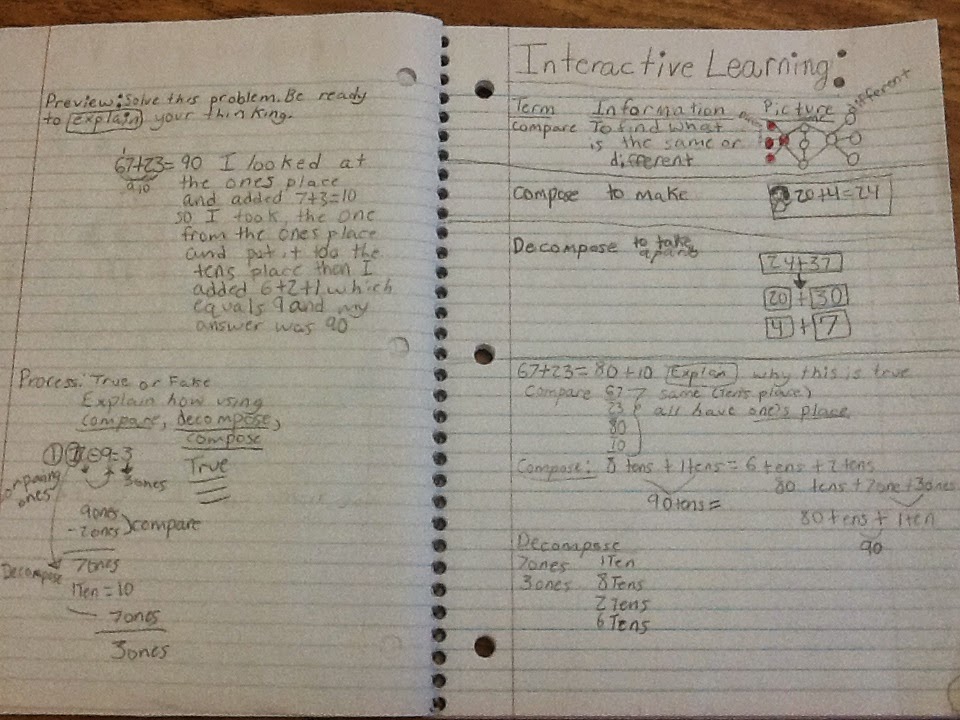 Preview: Solve this problem. Be ready
to Explain your thinking.
1
67+23= 90 I looked at
10
the ones place
and added 7+3=10
so I took the one
from the ones place
and put it too the
tens place then I
added 6+2+1 which
equals 9 and my
answer was 90
Process: True or Fake
Explain how using
compare, decompose,
compose
-9=3
True
3ones
ones
9ones
-2ones
compare
Decompose
7ones
1Ten=10
7ones
3ones
Interactive Learning:
Term Information Picture
different
compare To find what
is the same or
different
Compose to make
20+4=24
Decompose to take
apart
24+37
20 + 30
4 + 7
67+23=80+10 Explan why this is true
Compare 67 same (Ten's place)
23 all have one's place
80
10
Compose: 8 tens + 1tens = 6 tens + 2 tens
80 tens + 7one + 3ones
90tens =
80tens + 1ten
90
Decompose
7ones 1Ten
3ones 8Tens
2Tens
6Tens